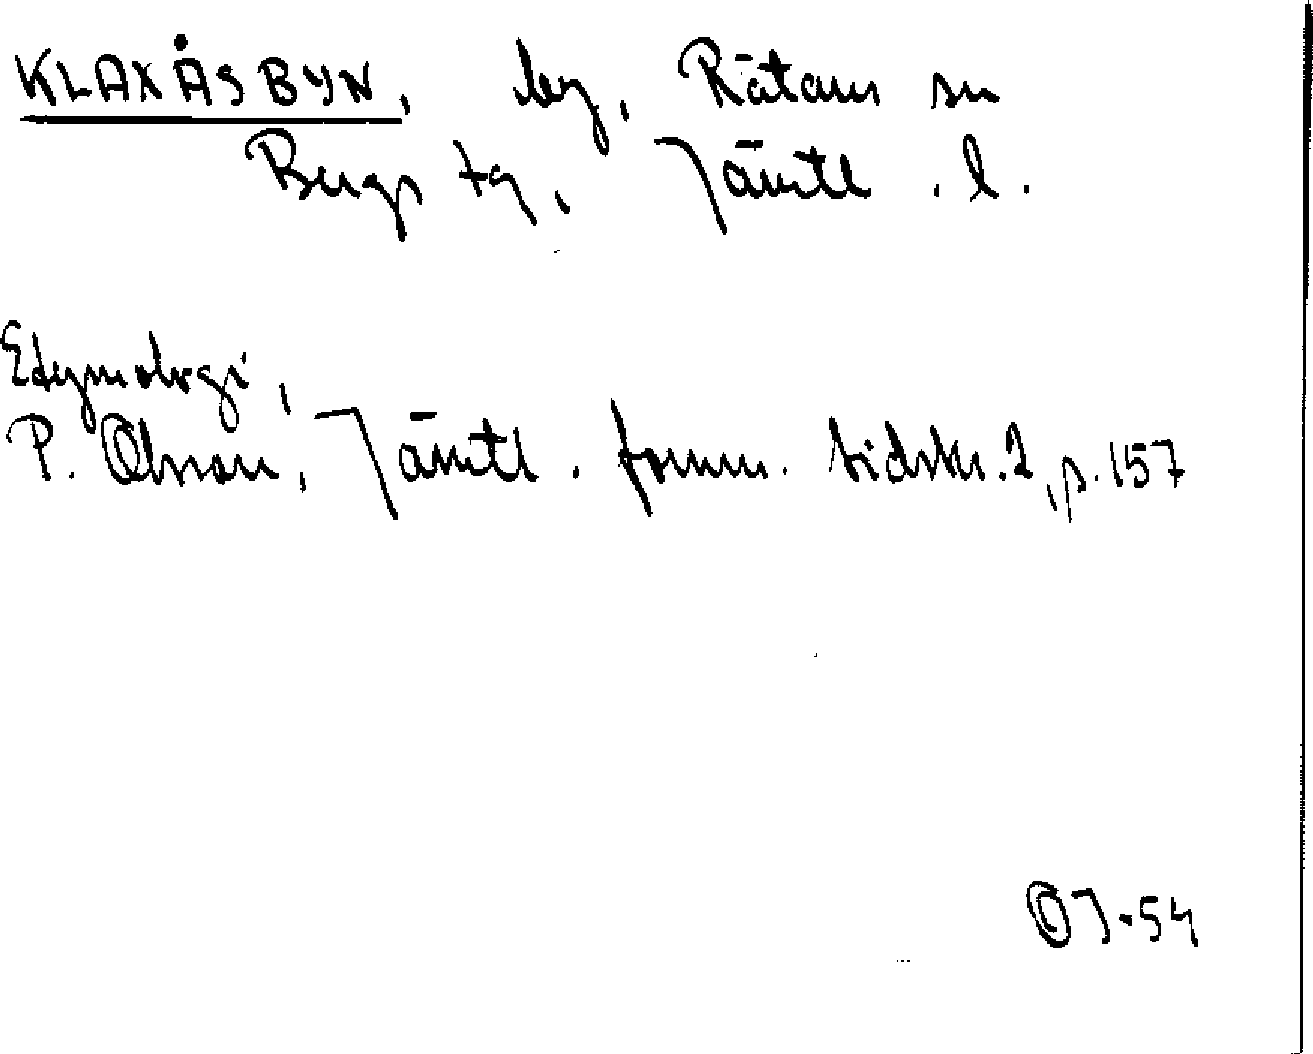 KLAXÅSBYN, by, Rätans sn
Bergs tg, Jämtl. l.
Etymologi,
P. Olsson, Jämtl. fornm. tidskr. 2, p. 157
OJ-54